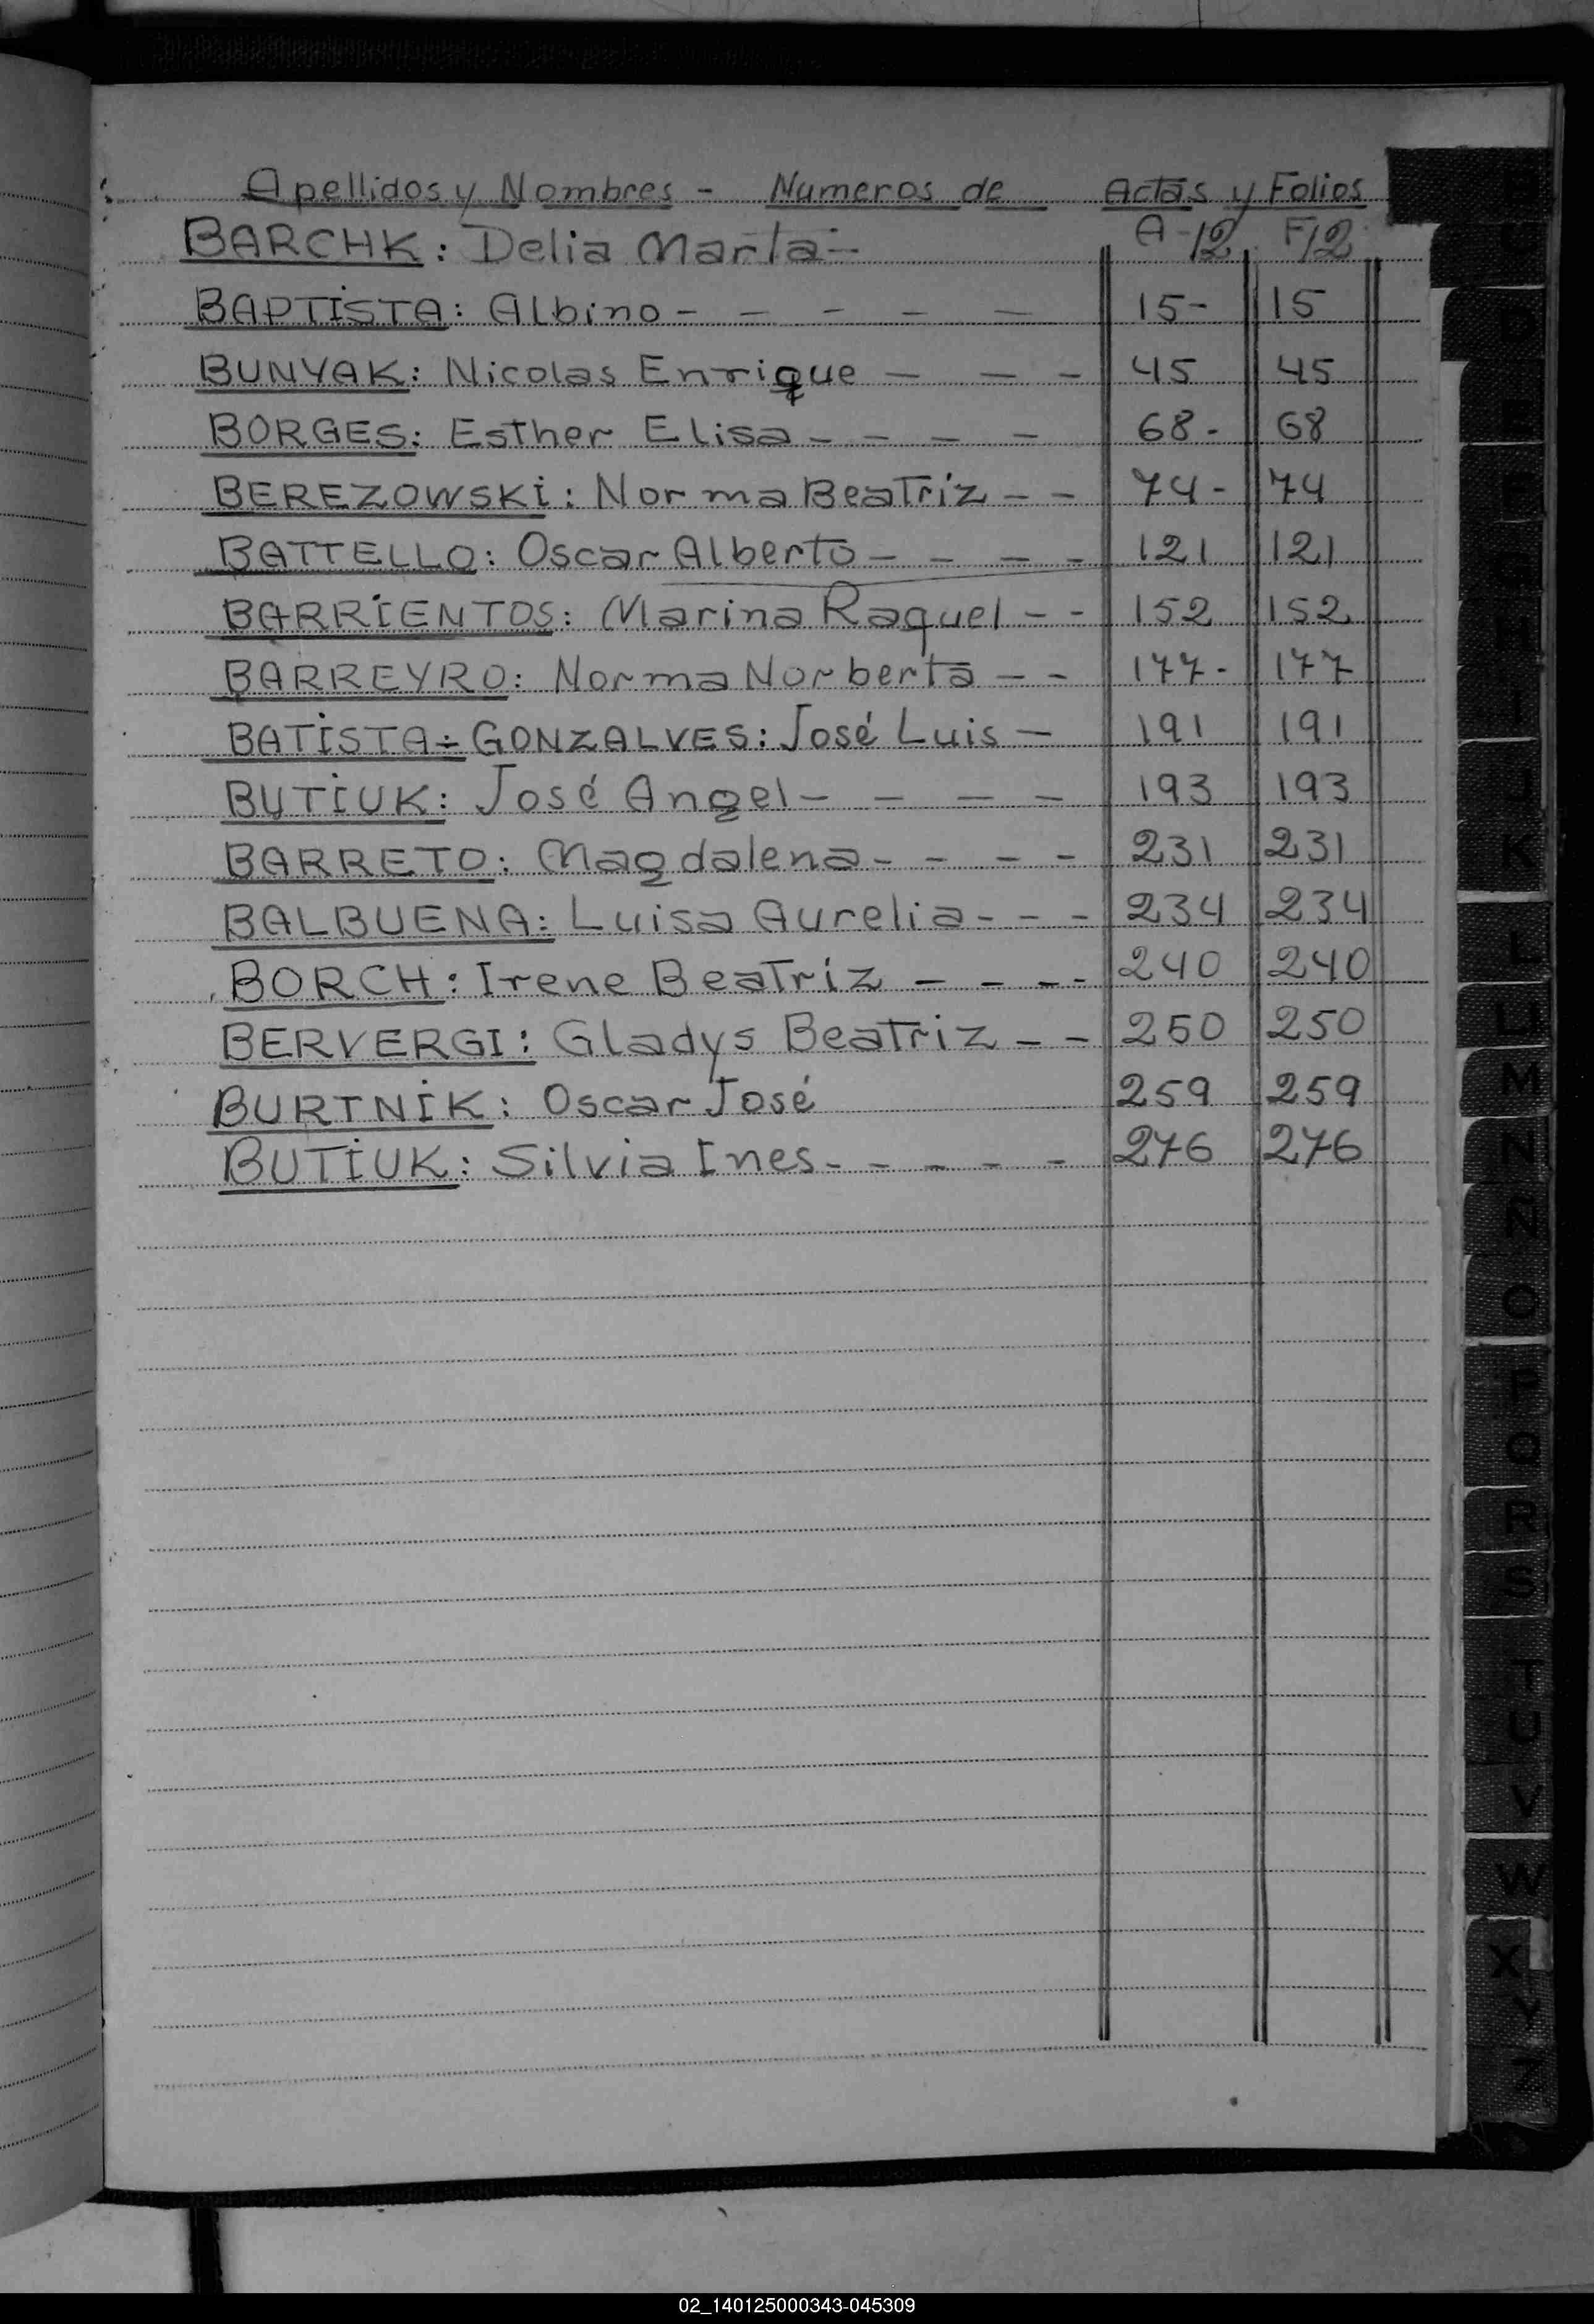 Apellidos y Nombres - Numeros de Actas y Folios
BARCHK: Delia Marta - A-12 F/12
BAPTISTA: Albino - - - - - 15- 15
BUNYAK: Nicolas Enrique - - - 45 45
BORGES: Esther Elisa - - - - 68- 68
BEREZOWSKI: Norma Beatriz - - 74- 74
BATTELLO: Oscar Alberto - - - - 121 121
BARRIENTOS: Marina Raquel - - 152 152
BARREYRO: Norma Norberta - - 177- 177
BATISTA÷GONZALVES: José Luis - 191 191
BUTIUK: José Angel - - - - 193 193
BARRETO: Magdalena - - - - 231 231
BALBUENA: Luisa Aurelia - - - 234 234
BORCH: Irene Beatriz - - - - 240 240
BERVERGI: Gladys Beatriz - - 250 250
BURTNIK: Oscar José 259 259
BUTIUK: Silvia Ines - - - - - 276 276
D
E
H
I
J
K
L
M
N
N
O
P
Q
R
S
T
U
V
W
X
Y
Z
02_140125000343-045309